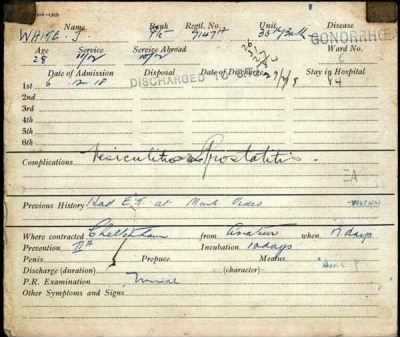 Name Rank Regtl. No. Unit Disease
WHITE. J. Pte 9147A 35th Batt GONORRHŒ
Age Service Service Abroad Ward No.
28 11/12 10/12
Date of Admission Disposal Date of Discharge Stay in Hospital
DISCHARGED TO
1st 6 12 18 84
2nd
3rd
4th
5th
6th
Complications Vesiculitis & Prostatitis.
EA
Previous History Had E.T. at
Where contracted Cheltenham from Amateur when 7 days
Prevention Incubation 10 days
Penis Prepuce Meatus
Discharge (duration) (character)
P.R. Examination
Other Symptoms and Signs